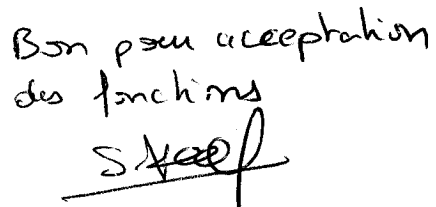 Bon pour acceptation
des fonctions